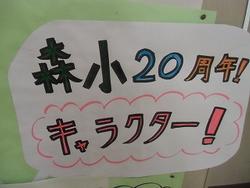 森小20周年!
キャラクター!